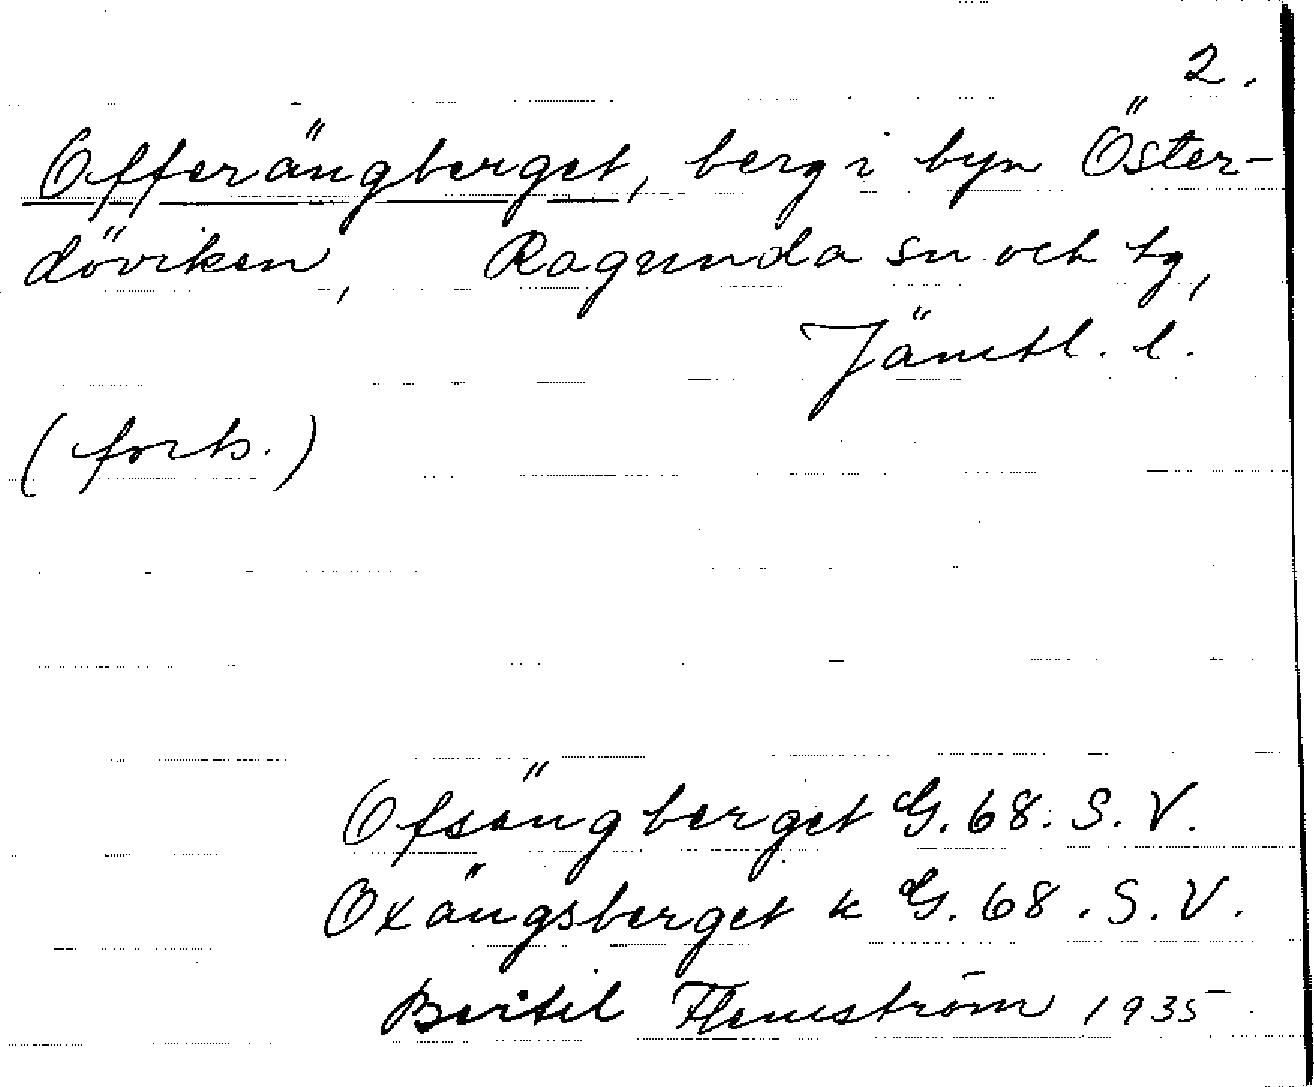 2.
Offerängberget, berg i byn Öster-
döviken, Ragunda sn och tg,
Jämtl. l.
(forts.)
Ofsängberget G. 68. S. V.
Oxängsberget k G. 68. S. V.
Bertil Flemström 1935